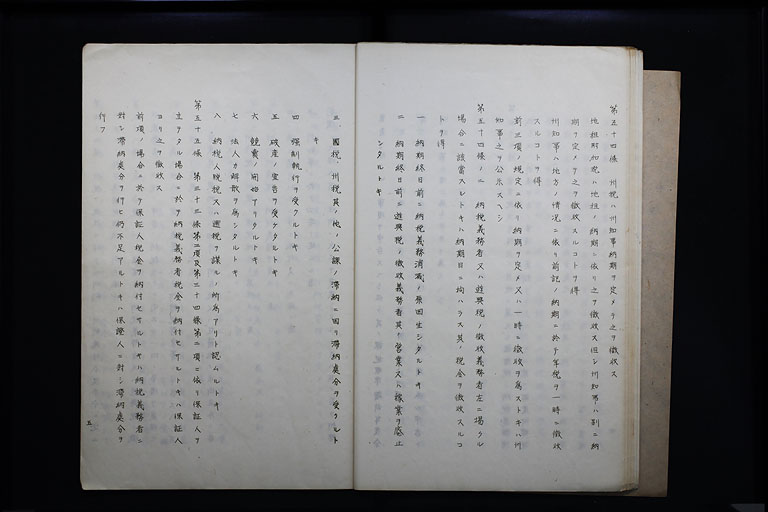 第五十四條　州税ハ州知事納期ヲ定メテ之ヲ徴收ス
地租附加税ハ地租ノ納期ニ依リ之ヲ徴收ス但シ州知事ハ別ニ納
期ヲ定メテ之ヲ徴收スルコトヲ得
州知事ハ地方ノ情況ニ依リ前記ノ納期ニ於テ年税ヲ一時ニ徴收
スルコトヲ得
前三項ノ規定ニ依リ納期ヲ定メ又ハ一時ニ徴收ヲ爲ストキハ州
知事之ヲ公示スヘシ
第五十四條ノ二　納税義務者又ハ遊興税ノ徴收義務者左ニ揭クル
場合ニ該當スルトキハ納期日ニ拘ハラス其ノ税金ヲ徴收スルコ
トヲ得
一　納期終日前ニ納税義務消滅ノ原因生シタルトキ
二　納期終日前ニ遊興税ノ徴收義務者其ノ營業又ハ稼業ヲ廢止
シタルトキ
三　國税、州税其ノ他ノ公課ノ滯納ニ因リ滯納處分ヲ受クルト
キ
四　强制執行ヲ受クルトキ
五　破産ノ宣告ヲ受ケタルトキ
六　競賣ノ開始アリタルトキ
七　法人カ解散ヲ爲シタルトキ
八　納税人脱税又ハ逋税ヲ謀ルノ所爲アリト認ムルトキ
第五十五條　第三十三條第二項及第三十四條第二項ニ依リ保証人ヲ
立テタル場合ニ於テ納税義務者税金ヲ納付セサルトキハ保証人
ヨリ之ヲ徴收ス
前項ノ場合ニ於テ保証人税金ヲ納付セサルトキハ納税義務者ニ
對シ滯納處分ヲ行ヒ仍不足アルトキハ保證人ニ對シ滯納處分ヲ
行フ
五